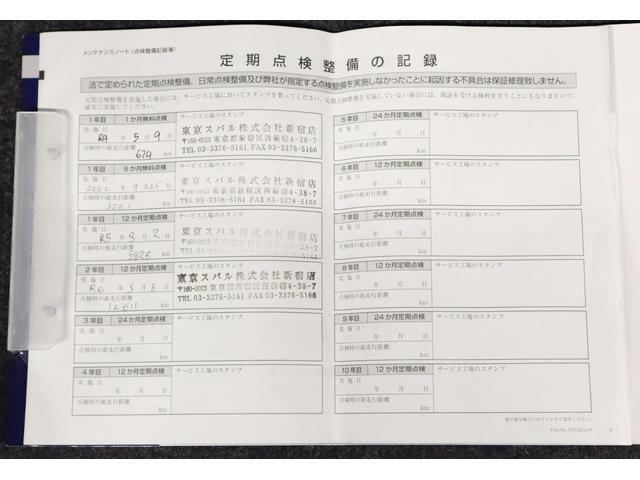 メンテナンスノート(点検整備記録簿)
定期点検整備の記録
法で定められた定期点検整備、日常点検整備及び弊社が指定する点検整備を実施しなかったことに起因する不具合は保証修理致しません。
定期点検整備を実施した場合には、サービス工場においてスタンプを貰ってください。定期点検整備を実施していない場合には、保証を受ける権利を失うことにもなりますので、
確実に実施してください。
1年目 1か月無料点検 サービス工場のスタンプ
実施日 R4年5月9日
点検時の総走行距離 674 km
東京スバル株式会社新宿店
〒160-0023 東京都新宿区西新宿4-38-7
TEL 03-3376-5161 FAX 03-3376-5166
1年目 6か月無料点検 サービス工場のスタンプ
実施日 2022年9月25日
点検時の総走行距離 km
東京スバル株式会社新宿店
〒160-0023 東京都新宿区西新宿4-38-7
TEL 03-3376-5161 FAX 03-3376-5166
1年目 12か月定期点検 サービス工場のスタンプ
実施日 R5年3月2日
点検時の総走行距離 5828 km
東京スバル株式会社新宿店
〒160-0023 東京都新宿区西新宿4-38-7
TEL 03-3376-5161 FAX 03-3376-5166
2年目 12か月定期点検 サービス工場のスタンプ
実施日 R6年3月8日
点検時の総走行距離 12611 km
東京スバル株式会社新宿店
〒160-0023 東京都新宿区西新宿4-38-7
TEL 03-3376-5161 FAX 03-3376-5166
3年目 24か月定期点検 サービス工場のスタンプ
実施日 年 月 日
点検時の総走行距離 km
4年目 12か月定期点検 サービス工場のスタンプ
実施日 年 月 日
点検時の総走行距離 km
5年目 24か月定期点検 サービス工場のスタンプ
実施日 年 月 日
点検時の総走行距離 km
6年目 12か月定期点検 サービス工場のスタンプ
実施日 年 月 日
点検時の総走行距離 km
7年目 24か月定期点検 サービス工場のスタンプ
実施日 年 月 日
点検時の総走行距離 km
8年目 12か月定期点検 サービス工場のスタンプ
実施日 年 月 日
点検時の総走行距離 km
9年目 24か月定期点検 サービス工場のスタンプ
実施日 年 月 日
点検時の総走行距離 km
10年目 12か月定期点検 サービス工場のスタンプ
実施日 年 月 日
点検時の総走行距離 km